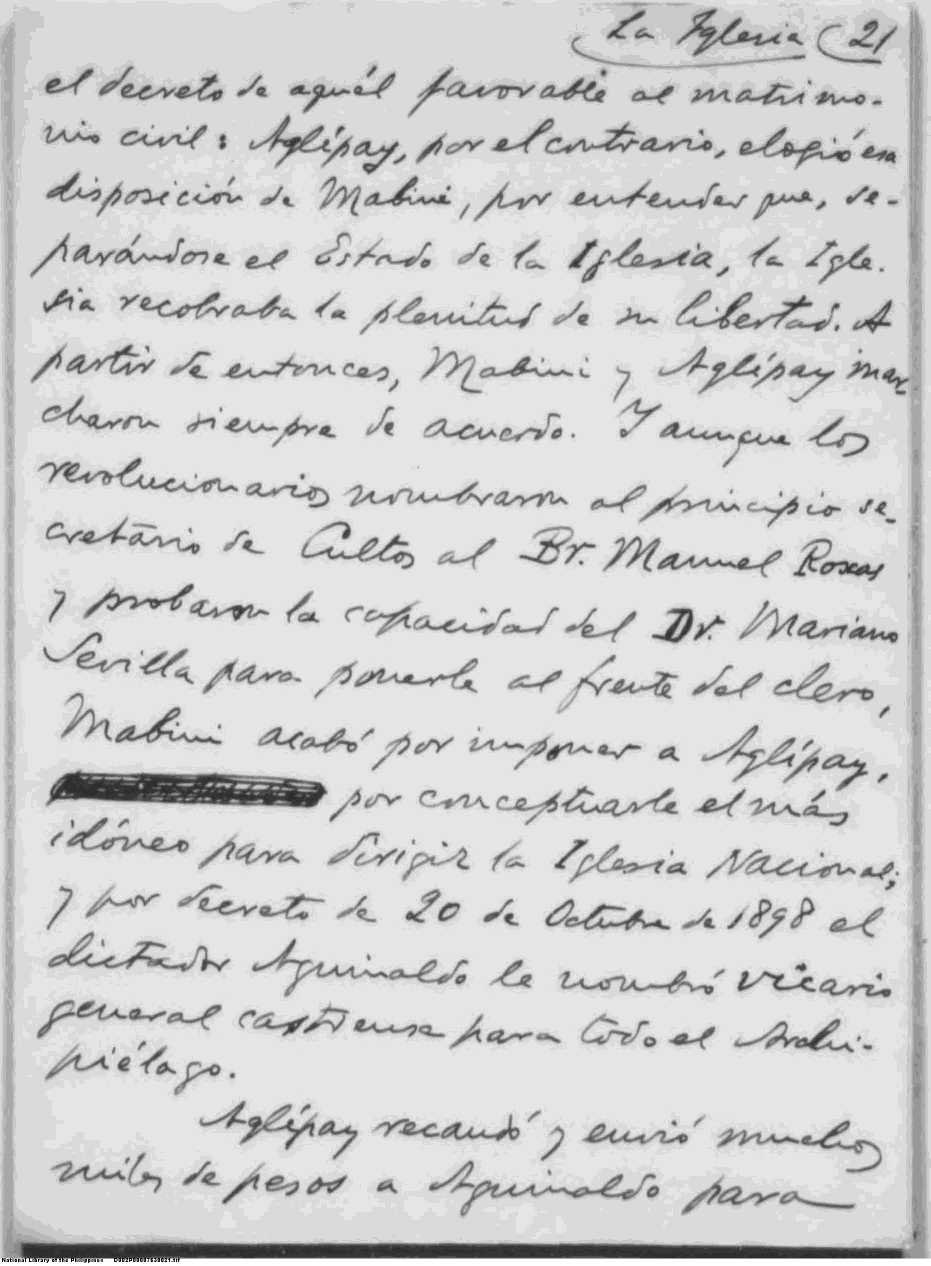 La Iglesia (21
el decreto de aquél favorable al matrimo-
nio civil: Aglípay, por el contrario, elogió esa
disposición de Mabini, por entender que, se-
parándose el Estado de la Iglesia, la Igle-
sia recobraba la plenitud de su libertad. A
partir de entonces, Mabini y Aglípay mar-
charon siempre de acuerdo. Y aunque los
revolucionarios nombraron al principio se-
cretario de Cultos al Br. Manuel Roxas
y probaron la capacidad del Dr. Mariano
Sevilla para ponerle al frente del clero,
Mabini acabó por imponer a Aglípay,
por conceptuarle el más
idóneo para dirigir la Iglesia Nacional;
y por decreto de 20 de Octubre de 1898 el
dictador Aguinaldo le nombró Vicario
general castrense para todo el Archi-
piélago.
Aglípay recaudó y envió muchos
miles de pesos a Aguinaldo para
National Library of the Philippines